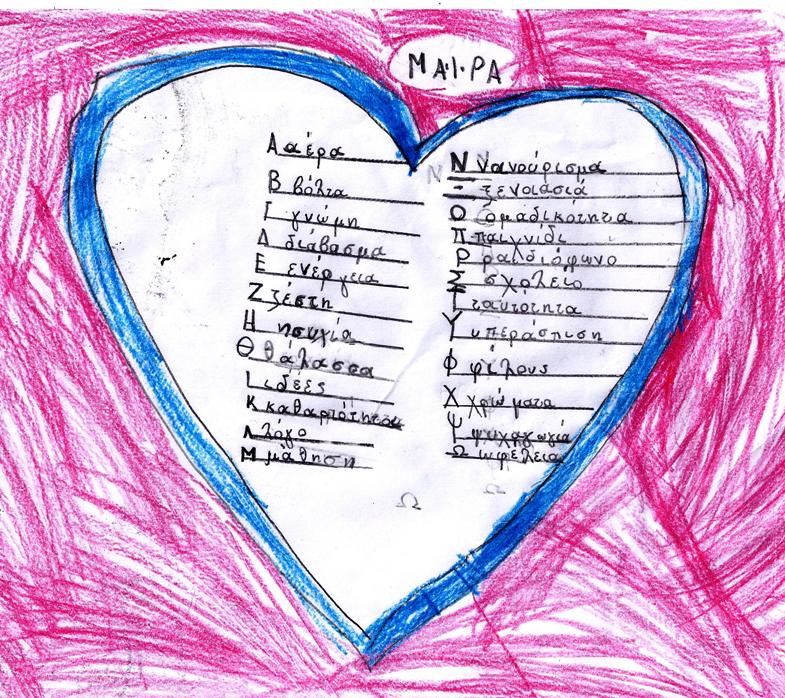 ΜΑ·Ι·ΡΑ
Α αέρα
Β βόλτα
Γ γνώμη
Δ διάβασμα
Ε ενέργεια
Ζ ζέστη
Η ησυχία
Θ θάλασσα
Ι ιδέες
Κ καθαριότητα
Λ λόγο
Μ μάθηση
Ν νανούρισμα
Ξ ξενοιασιά
Ο ομαδικότητα
Π παιχνίδι
Ρ ραδιόφωνο
Σ σχολείο
Τ ταυτότητα
Υ υπεράσπιση
Φ φίλους
Χ χρώματα
Ψ ψυχαγωγία
Ω ωφέλεια
Ν
Ω
Ω